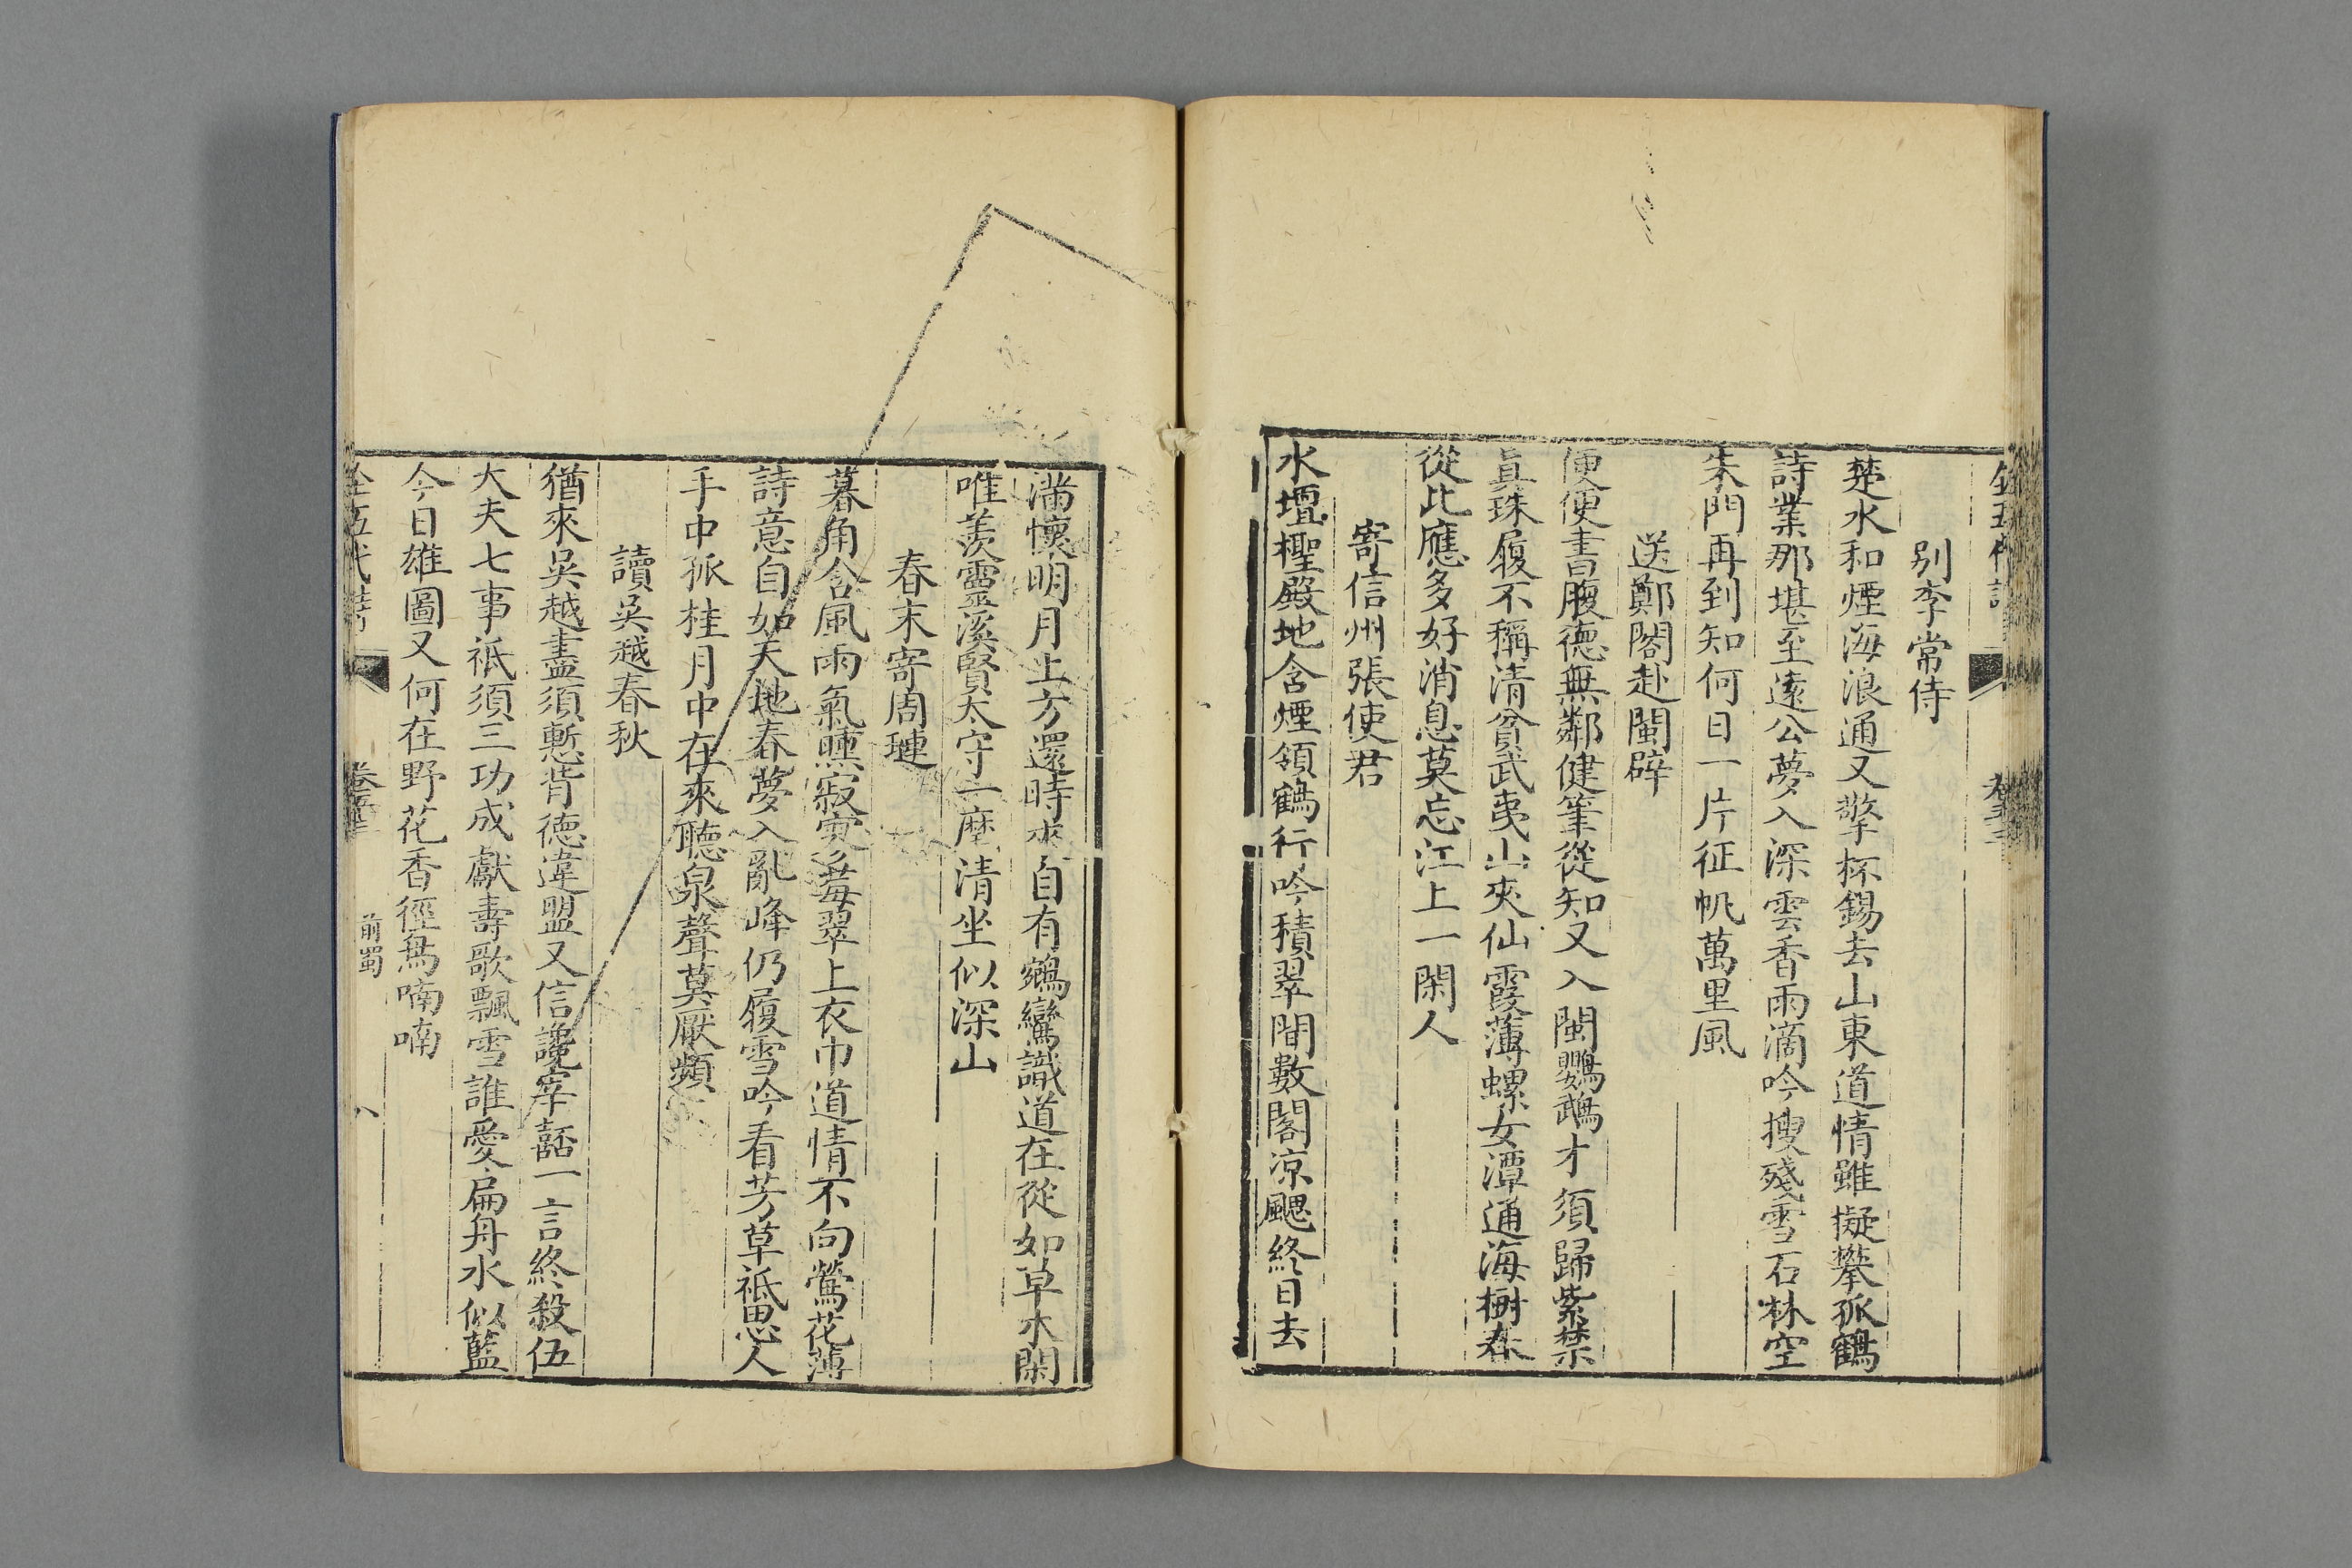 全五代詩
別李常侍
楚水和煙海浪通又擎杯錫去山東道情雖擬攀孤鶴
詩業那堪至遠公夢入深雲香雨滴吟搜殘雪石林空
朱門再到知何日一片征帆萬里風
送鄭閣赴閩辟
便便書腹德無鄰健筆從知又入閩鸚鵡才須歸紫禁
眞珠履不稱清貧武夷山夾仙霞薄螺女潭通海樹春
從此應多好消息莫忘江上一閑人
寄信州張使君
水壇檉殿地含煙領鶴行吟積翠間數閣凉颸終日去
滿懷明月上方還時來自有鵷鸞識道在從如草木閑
唯羨靈溪賢太守一麾清坐似深山
春末寄周璉
暮角含風雨氣曛寂寞莓翠上衣巾道情不向鶯花薄
詩意自如天地春夢入亂峰仍履雪吟看芳草祗思人
手中孤桂月中在來聽泉聲莫厭頻
讀吳越春秋
猶來吳越盡須慙背德違盟又信讒宰嚭一言終殺伍
大夫七事祇須三功成獻壽歌飄雪誰愛扁舟水似藍
今日雄圖又何在野花香徑鳥喃喃
全五代詩
前蜀
八